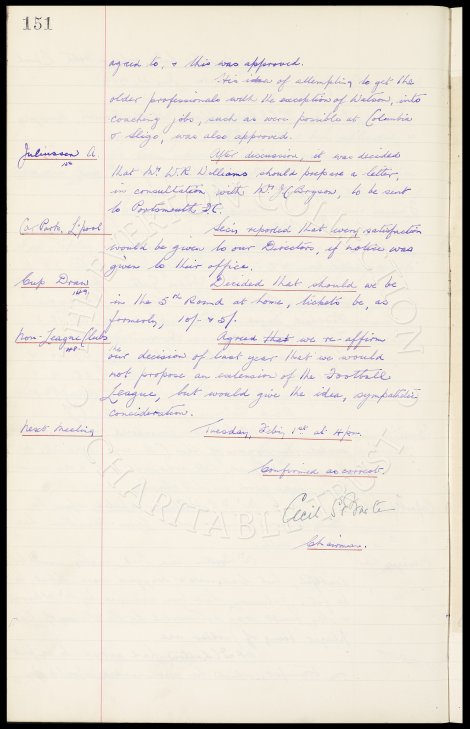 151
agreed to, & this was approved.
His idea of attempting to get the
older professionals with the exception of Watson, into
coaching jobs, such as were possible at Colombia
or Sligo, was also approved.
Juliussen A. After discussion, it was decided
that Mr W.R. Williams should prepare a letter,
in consultation with Mr J.C. Bryson, to be sent
to Portsmouth F.C.
Car Park, L'pool Secy reported that every satisfaction
would be given to our Directors, if notice was
given to their office.
Cup Draw Decided that should we be
in the 5th Round at home, tickets be, as
formerly, 10/- & 5/-.
Non-League Clubs Agreed that we re-affirm
our decision of last year that we would
not propose an extension of the Football
League, but would give the idea, sympathetic
consideration.
Next meeting Tuesday, Feby 1st at 4 pm.
Confirmed as correct.
Cecil S.
Chairman.
CHARITABLE TRUST